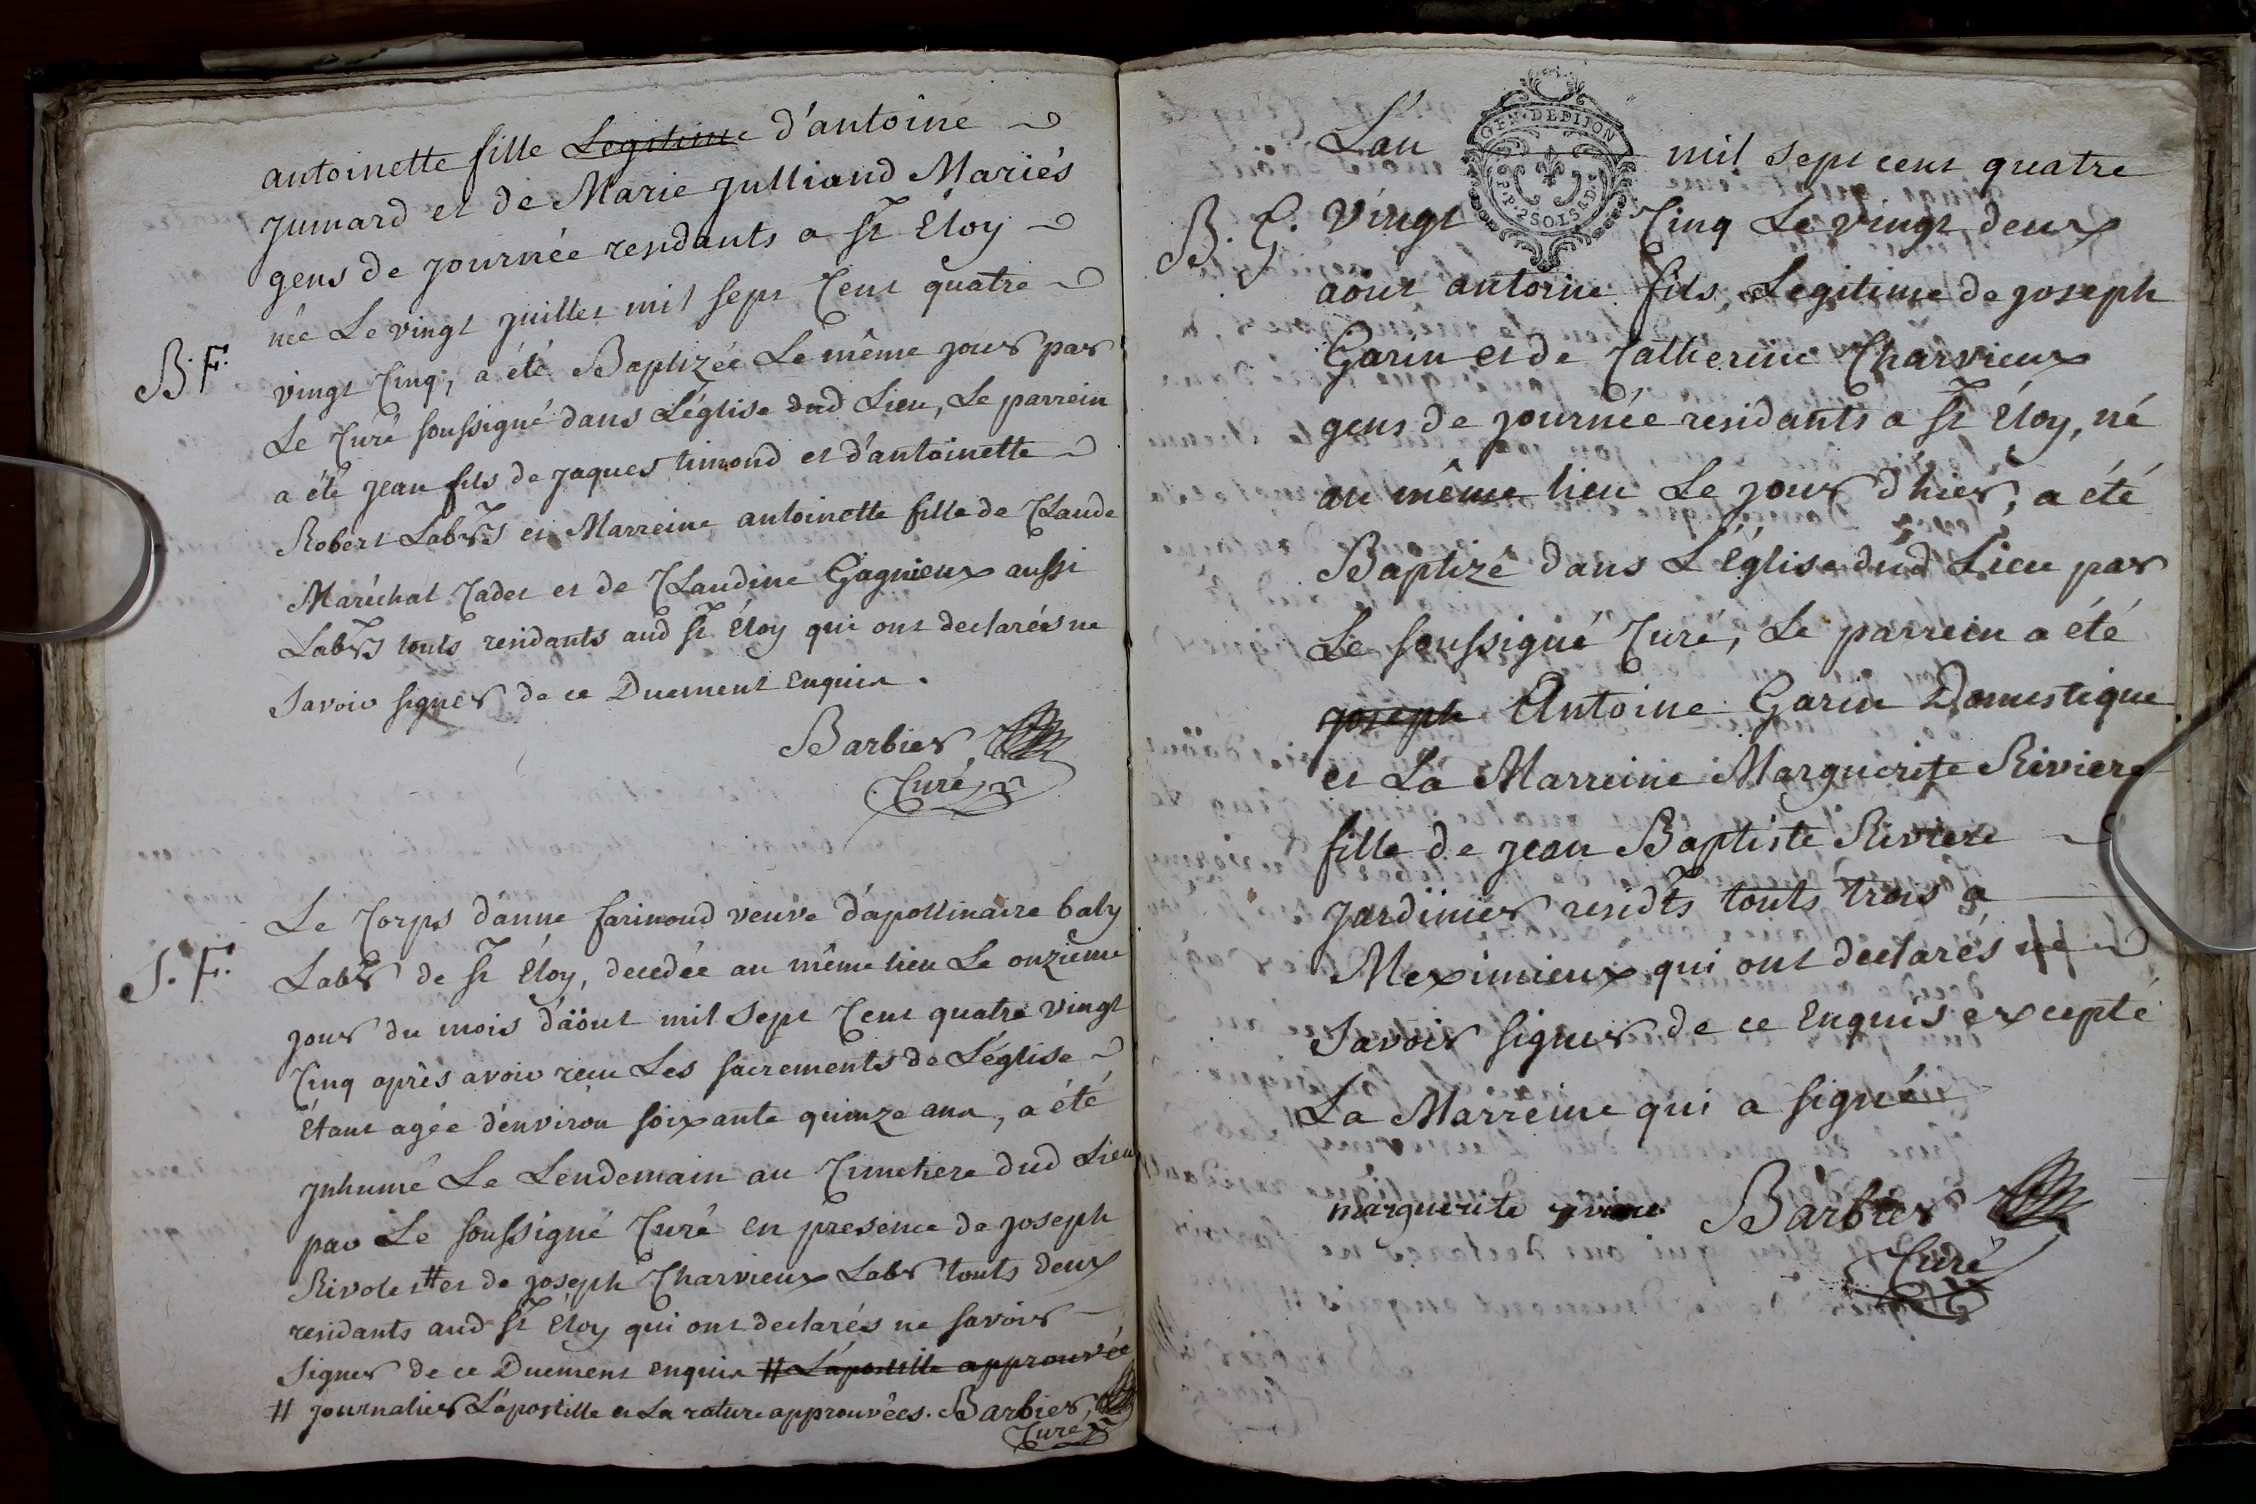 antoinette fille Legitime d'antoine
Jumard et de Marie Julliand Mariés
gens de journée residants a St Éloy
née Le vingt juillet mil sept Cent quatre
B. F.
vingt Cinq, a été Baptizée Le même jour par
Le Curé soussigné dans L'église dud Lieu, Le parrein
a été jean fils de jaques timond et d'antoinette
Robert Labrs et Marreine antoinette fille de Claude
Maréchal Cadet et de Claudine Gagnieux aussi
Labrs touts residants aud St Éloy qui ont declarés ne
Savoir signer de ce Duement enquis.
Barbier
Curé
Le Corps d'anne farimond veuve d'apollinaire baby
S. F.
Labr de St Éloy, decedée au même lieu Le onzième
jour du mois d'aöut mil Sept Cent quatre vingt
Cinq après avoir reçu Les sacrements de L'église
Étant agée d'environ soixante quinze ans, a été
inhumé Le Lendemain au Cimetiere dud Lieu
par Le soussigné Curé en presence de joseph
Rivole # et de joseph Charvieux Labr touts deux
residants aud St Éloy qui ont declarés ne savoir
Signer de ce Duement enquis # L'apostille approuvée
# journalier L'apostille et La rature approuvées. Barbier,
Curé
L'an mil sept cent quatre
GEN. DE DIJON
P.P. 2 SOLS 4 D.
B. G. vingt Cinq Le vingt deux
aöut antoine fils Legitime de joseph
Garin et de Catherine Charvieux
gens de journée residants a St Éloy, né
au même lieu Le jour d'hier, a été
Baptizé dans L'Église dud Lieu par
Le soussigné Curé, Le parrein a été
joseph Antoine Garin Domestique
et La Marreine Marguerite Riviere
fille de jean Baptiste Riviere
jardinier residts touts trois a
Meximieux qui ont declarés ne
Savoir signer de ce enquis excepté
La Marreine qui a signé
marguerite Barbier
Curé